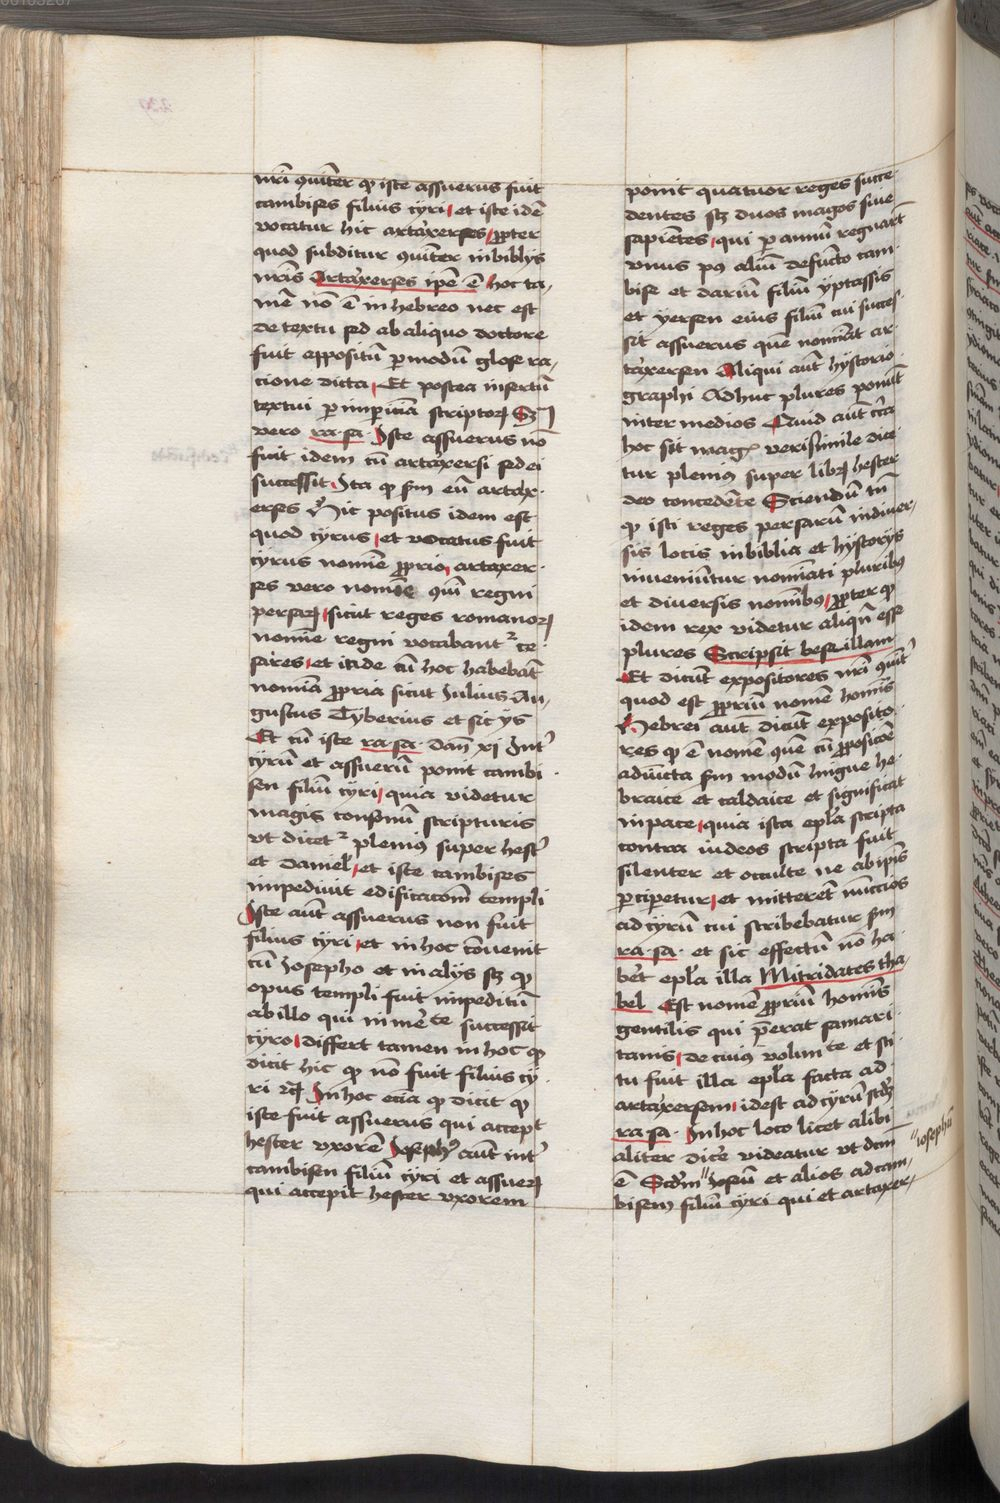 nr̄i 9uīter ꝙ iste assuerus fuit
cambises filius cyri et iste idē
vocatur hic artaxerses ꝓpter
quod subditur 9uīter in biblijs
nr̄is Artaxerses ip̄e ē hoc ta,
mē nō ē in hebreo nec est
de textu sed ab aliquo doctore
fuit appositū ꝑ modū glose ra,
cione dicta Et postea insertū
textui ꝑ impericiā scriptoꝝ Sꝫ
vero ra·sa· Iste assuerus nō
fuit idem cū artaxersi sed ei
successit Ita ꝙ sm̄ eū artax·
erses hic positus idem est
quod cyrus et vocatus fuit
cyrus nomīe ꝓprio artaxer·
ses vero nomīe 9uī regni
persaꝝ sicut reges romanoꝝ
nomīe regni vocabant᷑ ce·
sares et itide cū hoc habebāt
nomīa ꝓpria sicut Iulius Au,
gustus Tyberius et sic ys
Et cū iste ra·sa· dan̄ xi Int᷑
cyrū et assuerū ponit cambi·
sen filiū cyri quia videtur
magis consonū scripturis
vt dicet᷑ plenius super hest᷑
et daniel̄ et iste cambises
impediuit edificacōm templi
Iste aūt assuerus non fuit
filius cyri et in hoc cōuenit
cū Iosepho et in alijs sꝫ ꝙ
opus templi fuit impeditū
ab illo qui īmēte successit
cyro differt tamen in hoc ꝙ
dicit hic ꝙ nō fuit filius cy·
ri In hoc eciā ꝙ dicit ꝙ
iste fuit assuerus qui accept
hester vxorē Ioseph9 aūt int᷑
cambisen filiū cyri et assueꝝ
qui accepit hester vxorem
ponit quatuor reges succe·
dentes sꝫ duos magos siue
sapiētes qui ꝑ annū regnarūt
vnus pꝰ aliū defuncto cam
bise et dariū filiū yptassis
et yersen eius filiū cui succes·
sit assuerus quē nomīat ar·
taxersen Aliqui aūt hystorio·
graphi Adhuc plures ponūt
inter medios Quid aūt cīra
hoc sit mag᷑ verisimile dice·
tur plenius super libꝝ hester
deo concedēte Sciendū tn̄
ꝙ isti reges persarū indiuer,
sis locis in biblia et hystorijs
inueniūtur nomīati pluribꝰ
et diuersis nomībꝰ ꝓpter ꝙ
idem rex videtur aliqn̄ esse
plures Scripsit beselllam
Et dicūt expositores nr̄i 9uīt᷑
quod est ꝓpriū nomen homīs
Hebrei aūt dicūt exposito·
res ꝙ ē nomē quē cū ꝓposicōe
adiūcta sm̄ modū lingue he·
braice et caldaice et significat
in pace quia ista epl̄a scripta
contra iudeos scripta fuit
silenter et occulte ne ab ip̄is
ꝑciperetur et mitterēt nūccios
ad cyrū cui scribebatur sm̄
ra·sa· et sic effectū nō ha·
bet epl̄a illa Mitridates tha,
bel Est nomē ꝓpriū homīs
gentilis qui p̄erat samari·
tanis de cuius volūtate et sci·
tu fuit illa epl̄a facta ad
artaxersem idest ad cyrū scd̄m
ra·sa· In hoc loco licet alibi
aliter dicē videatur vt dcm̄
ē Scd̄m "Iosēū et alios ad cam,
bisem filiū cyri qui et artaxer,
"iosephū